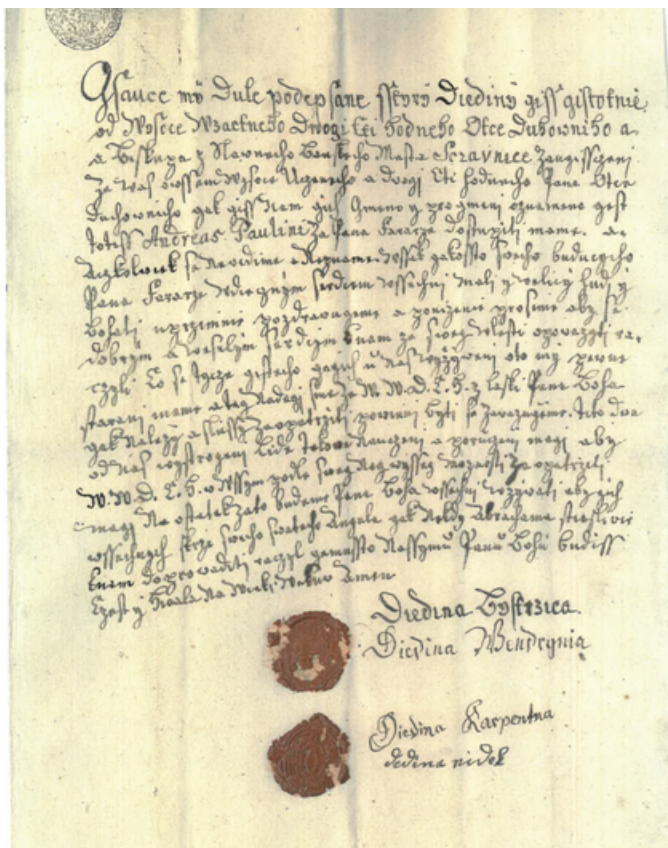 Gsauce my Dule podepsane sstyry Diediny giss gistotnie
od Wysoce Wzactneho Drogi Cti hodneho Otce Duhowniho a
a Biskupa z Slawneho Mesta Scravnice
za was Wysoce Uczeneho a drogi Cti hodneho Pana Otce
Duchowniho gak giss nam gich Gmeno y progmeni oznameno gest
totiss Andreas Paulini za Pana Faraře dostupiti mame. a
Aczkolwiek se newidime a Nezname wssak gakossto sweho buduczyho
Pana Faraře wdiecznym srdcem wssychni mali y welicy hudi y
Bohati uprzimnie pozdrawugeme a ponizenie prosyme aby se
dobrym a weselym srdcem knam ze swey wlasti
czyli Co se tycze gegich u nas wyzyweni oto my pewne
starani mame a tey Nadiegi sme ze W. W. D. C. H. z laski Pana Boha
gak Nalezy a slussy zaopatrziti powinni byti se zawazugeme. Tito dwa
od nas wystrogeni Lide Nauczeni a poruczeni magi aby
W. W. D. C. H. wssym podle swey Neywyssy moznosti zaopatrzili
magi Na ostatek zato budeme Pana Boha wssychni wzywati aby gich
wssechnych skrze sweho swateho Angela gak Nekdy Abrahama stiesliwie
knam doprowoditi raczyl gemussto Nassymu Panu Bohu budiss
Czest y Hwala Na Wieki Wekuw Amen
Diedina Bystrzica.
Diedina Wendrynia
Diedina Karpentna
dedina nidek